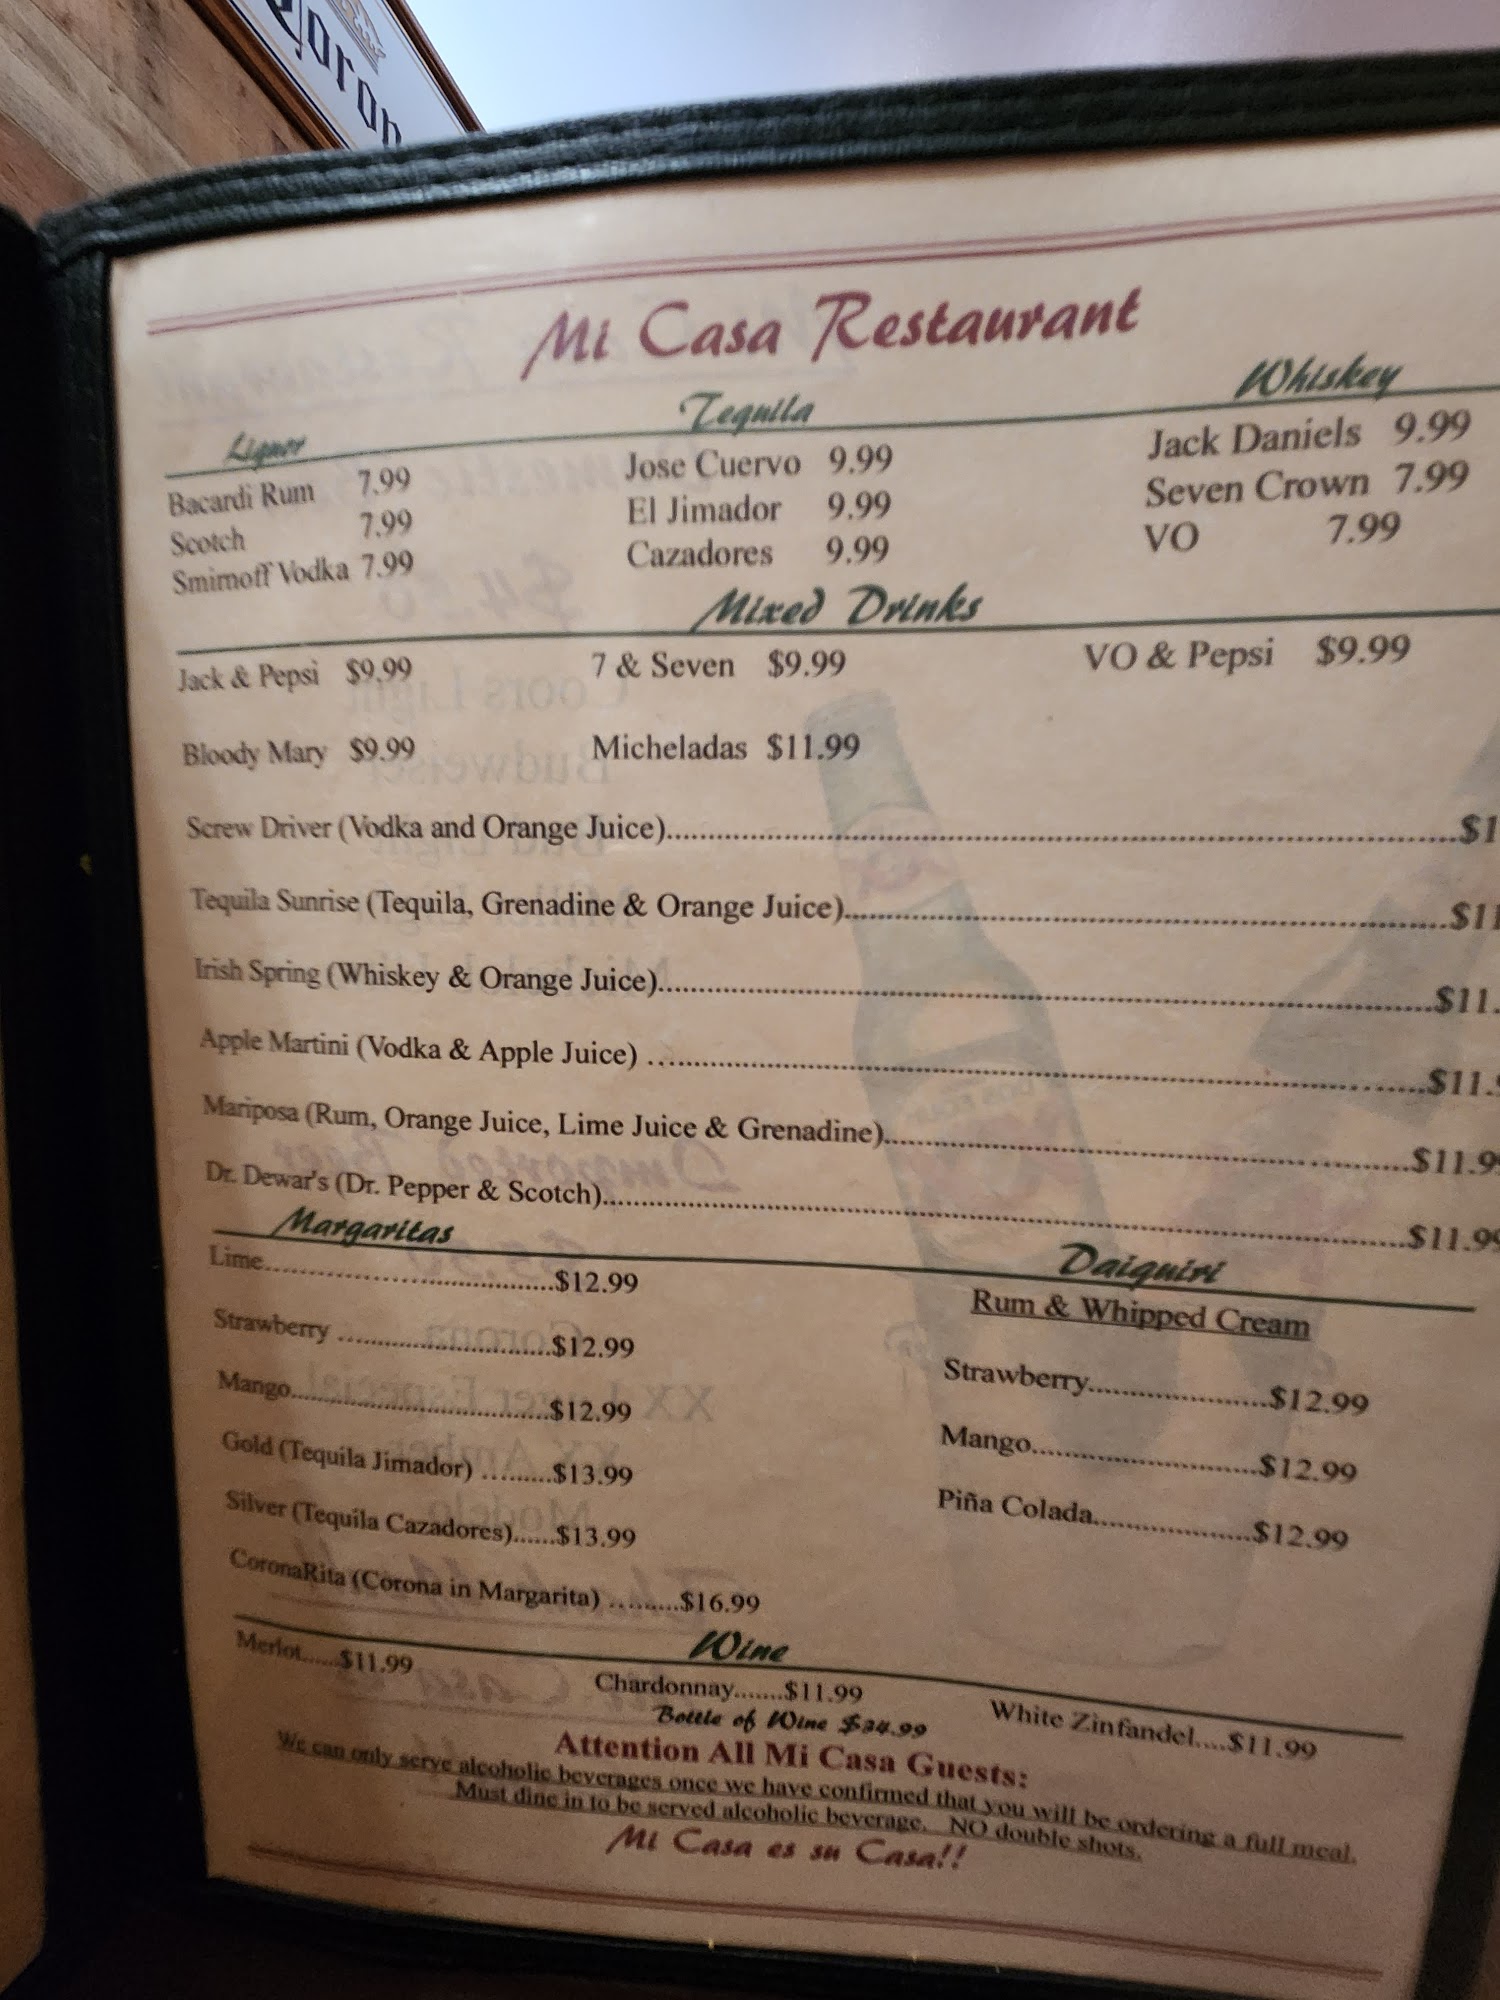 Coron
Mi Casa Restaurant
Liquor
Tequila
Whiskey
Bacardi Rum 7.99
Scotch 7.99
Smirnoff Vodka 7.99
Jose Cuervo 9.99
El Jimador 9.99
Cazadores 9.99
Jack Daniels 9.99
Seven Crown 7.99
VO 7.99
Mixed Drinks
Jack & Pepsi $9.99 7 & Seven $9.99 VO & Pepsi $9.99
Bloody Mary $9.99 Micheladas $11.99
Screw Driver (Vodka and Orange Juice)..........$1
Tequila Sunrise (Tequila, Grenadine & Orange Juice)..........$11
Irish Spring (Whiskey & Orange Juice)..........$11.
Apple Martini (Vodka & Apple Juice) ..........$11.9
Mariposa (Rum, Orange Juice, Lime Juice & Grenadine)..........$11.99
Dr. Dewar's (Dr. Pepper & Scotch)..........$11.99
Margaritas
Lime..........$12.99
Strawberry ..........$12.99
Mango..........$12.99
Gold (Tequila Jimador) ..........$13.99
Silver (Tequila Cazadores)......$13.99
CoronaRita (Corona in Margarita) ..........$16.99
Daiquiri
Rum & Whipped Cream
Strawberry..........$12.99
Mango..........$12.99
Piña Colada..........$12.99
Wine
Merlot......$11.99 Chardonnay.......$11.99 White Zinfandel....$11.99
Bottle of Wine
Attention All Mi Casa Guests:
We can only serve alcoholic beverages once we have confirmed that you will be ordering a full meal.
Must dine in to be served alcoholic beverage. NO double shots.
Mi Casa es su Casa!!